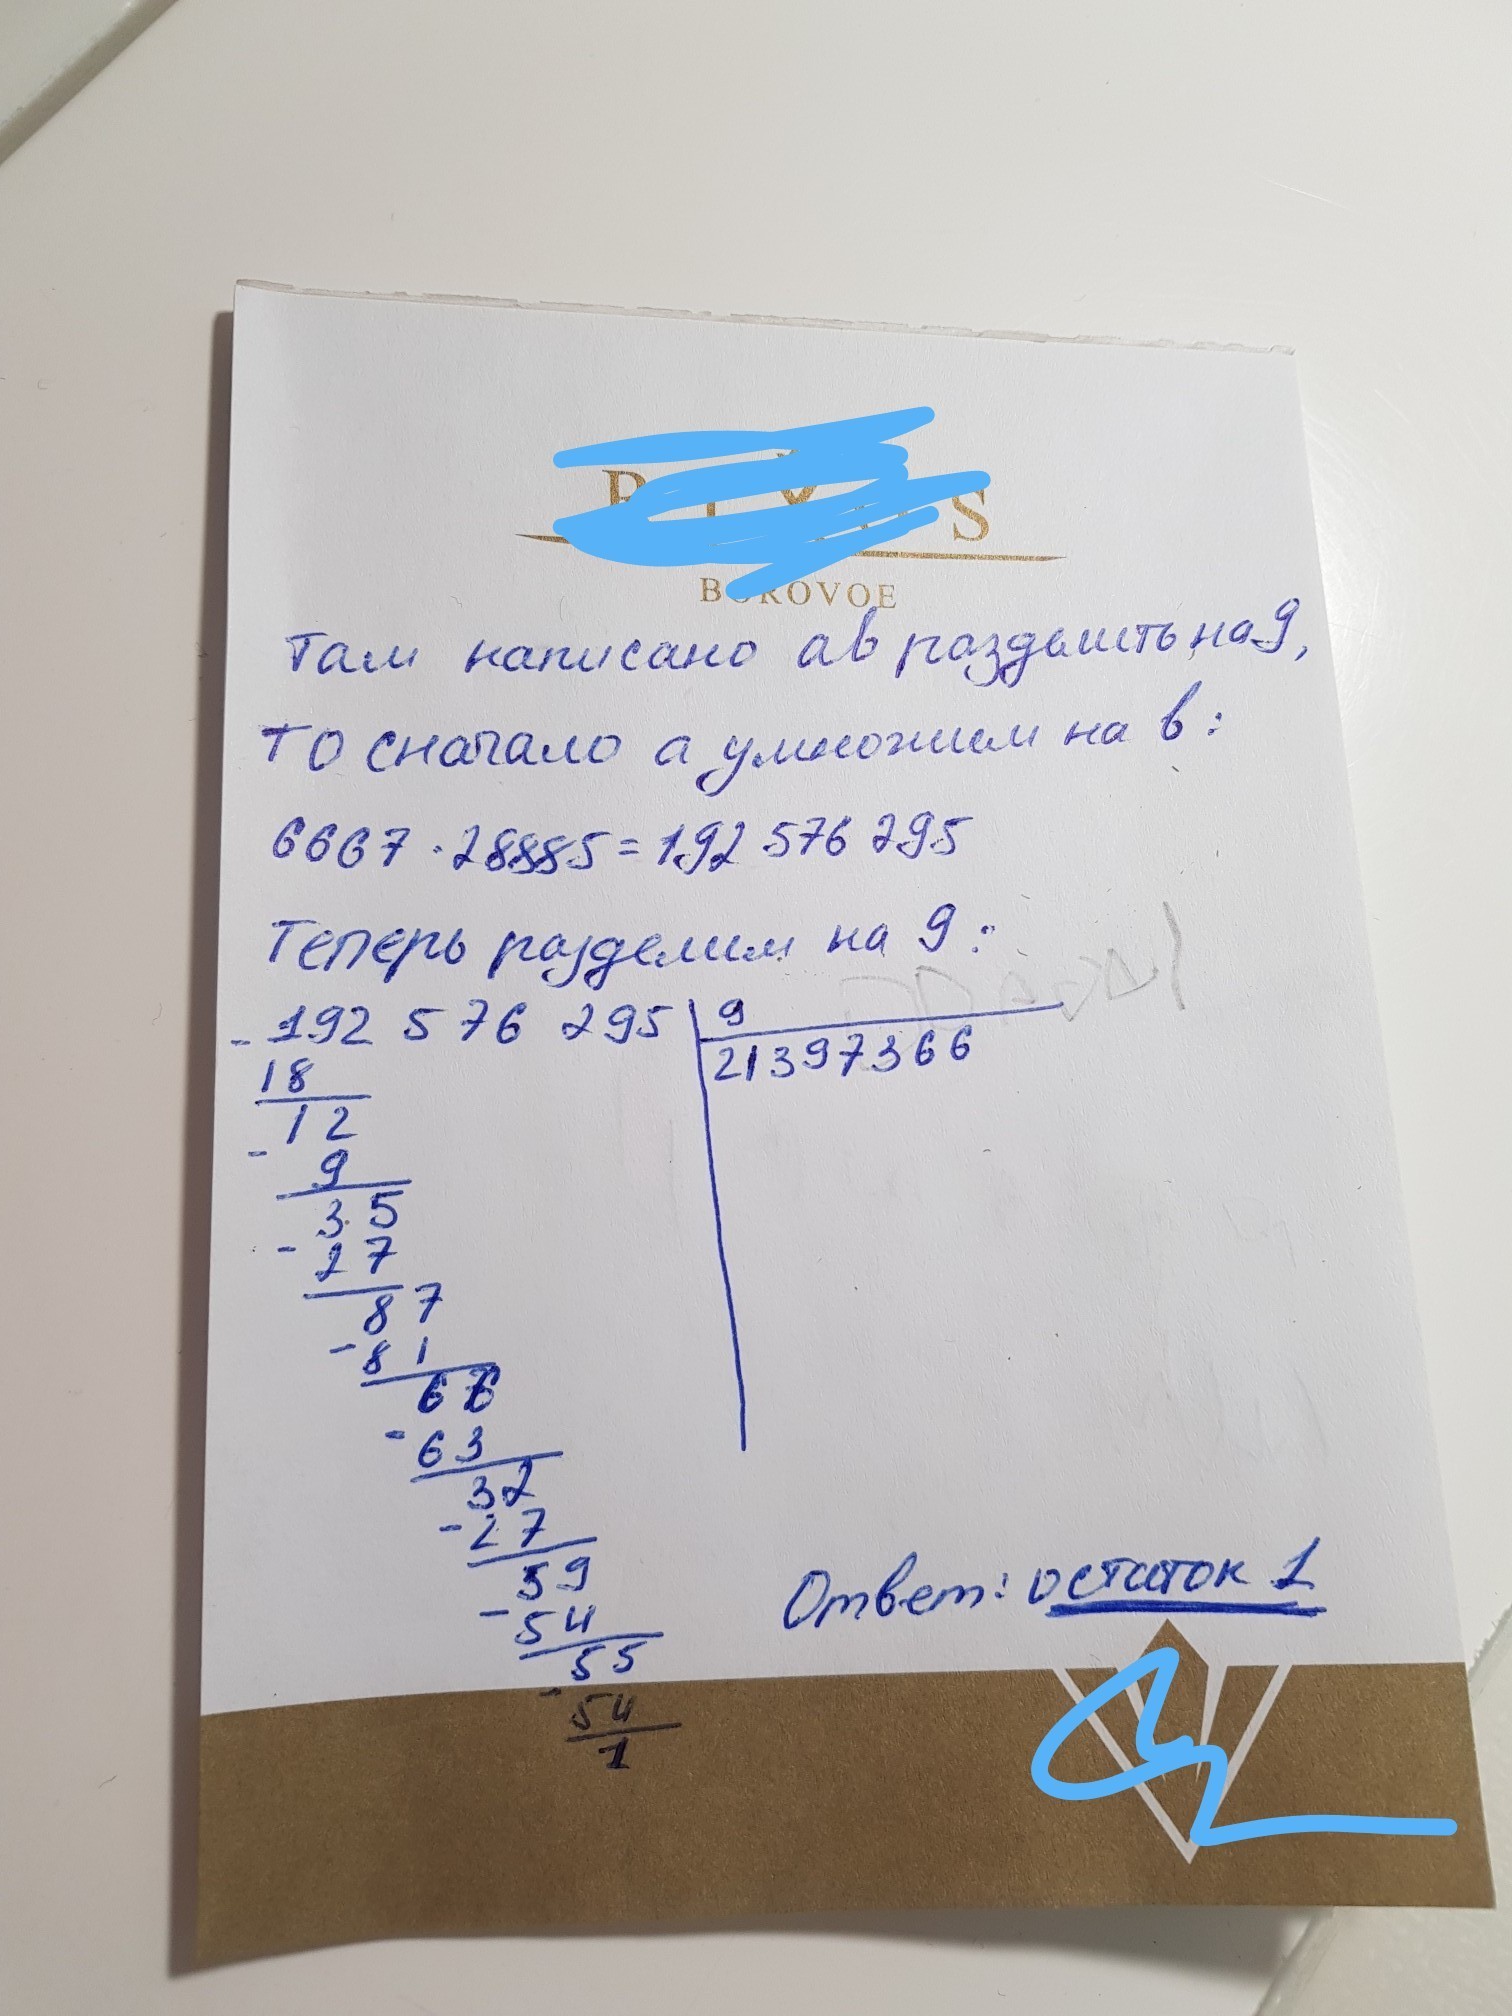 BOROVOE
Там написано ав раздылить на 9,
то сначало а умножим на в:
6667 · 28885 = 192 576 295
Теперь разделим на 9:
- 192 576 295 | 9
18 21397366
12
- 9
35
- 27
87
- 81
66
- 63
32
- 27
59
- 54
55
- 54
1
Ответ: остаток 1